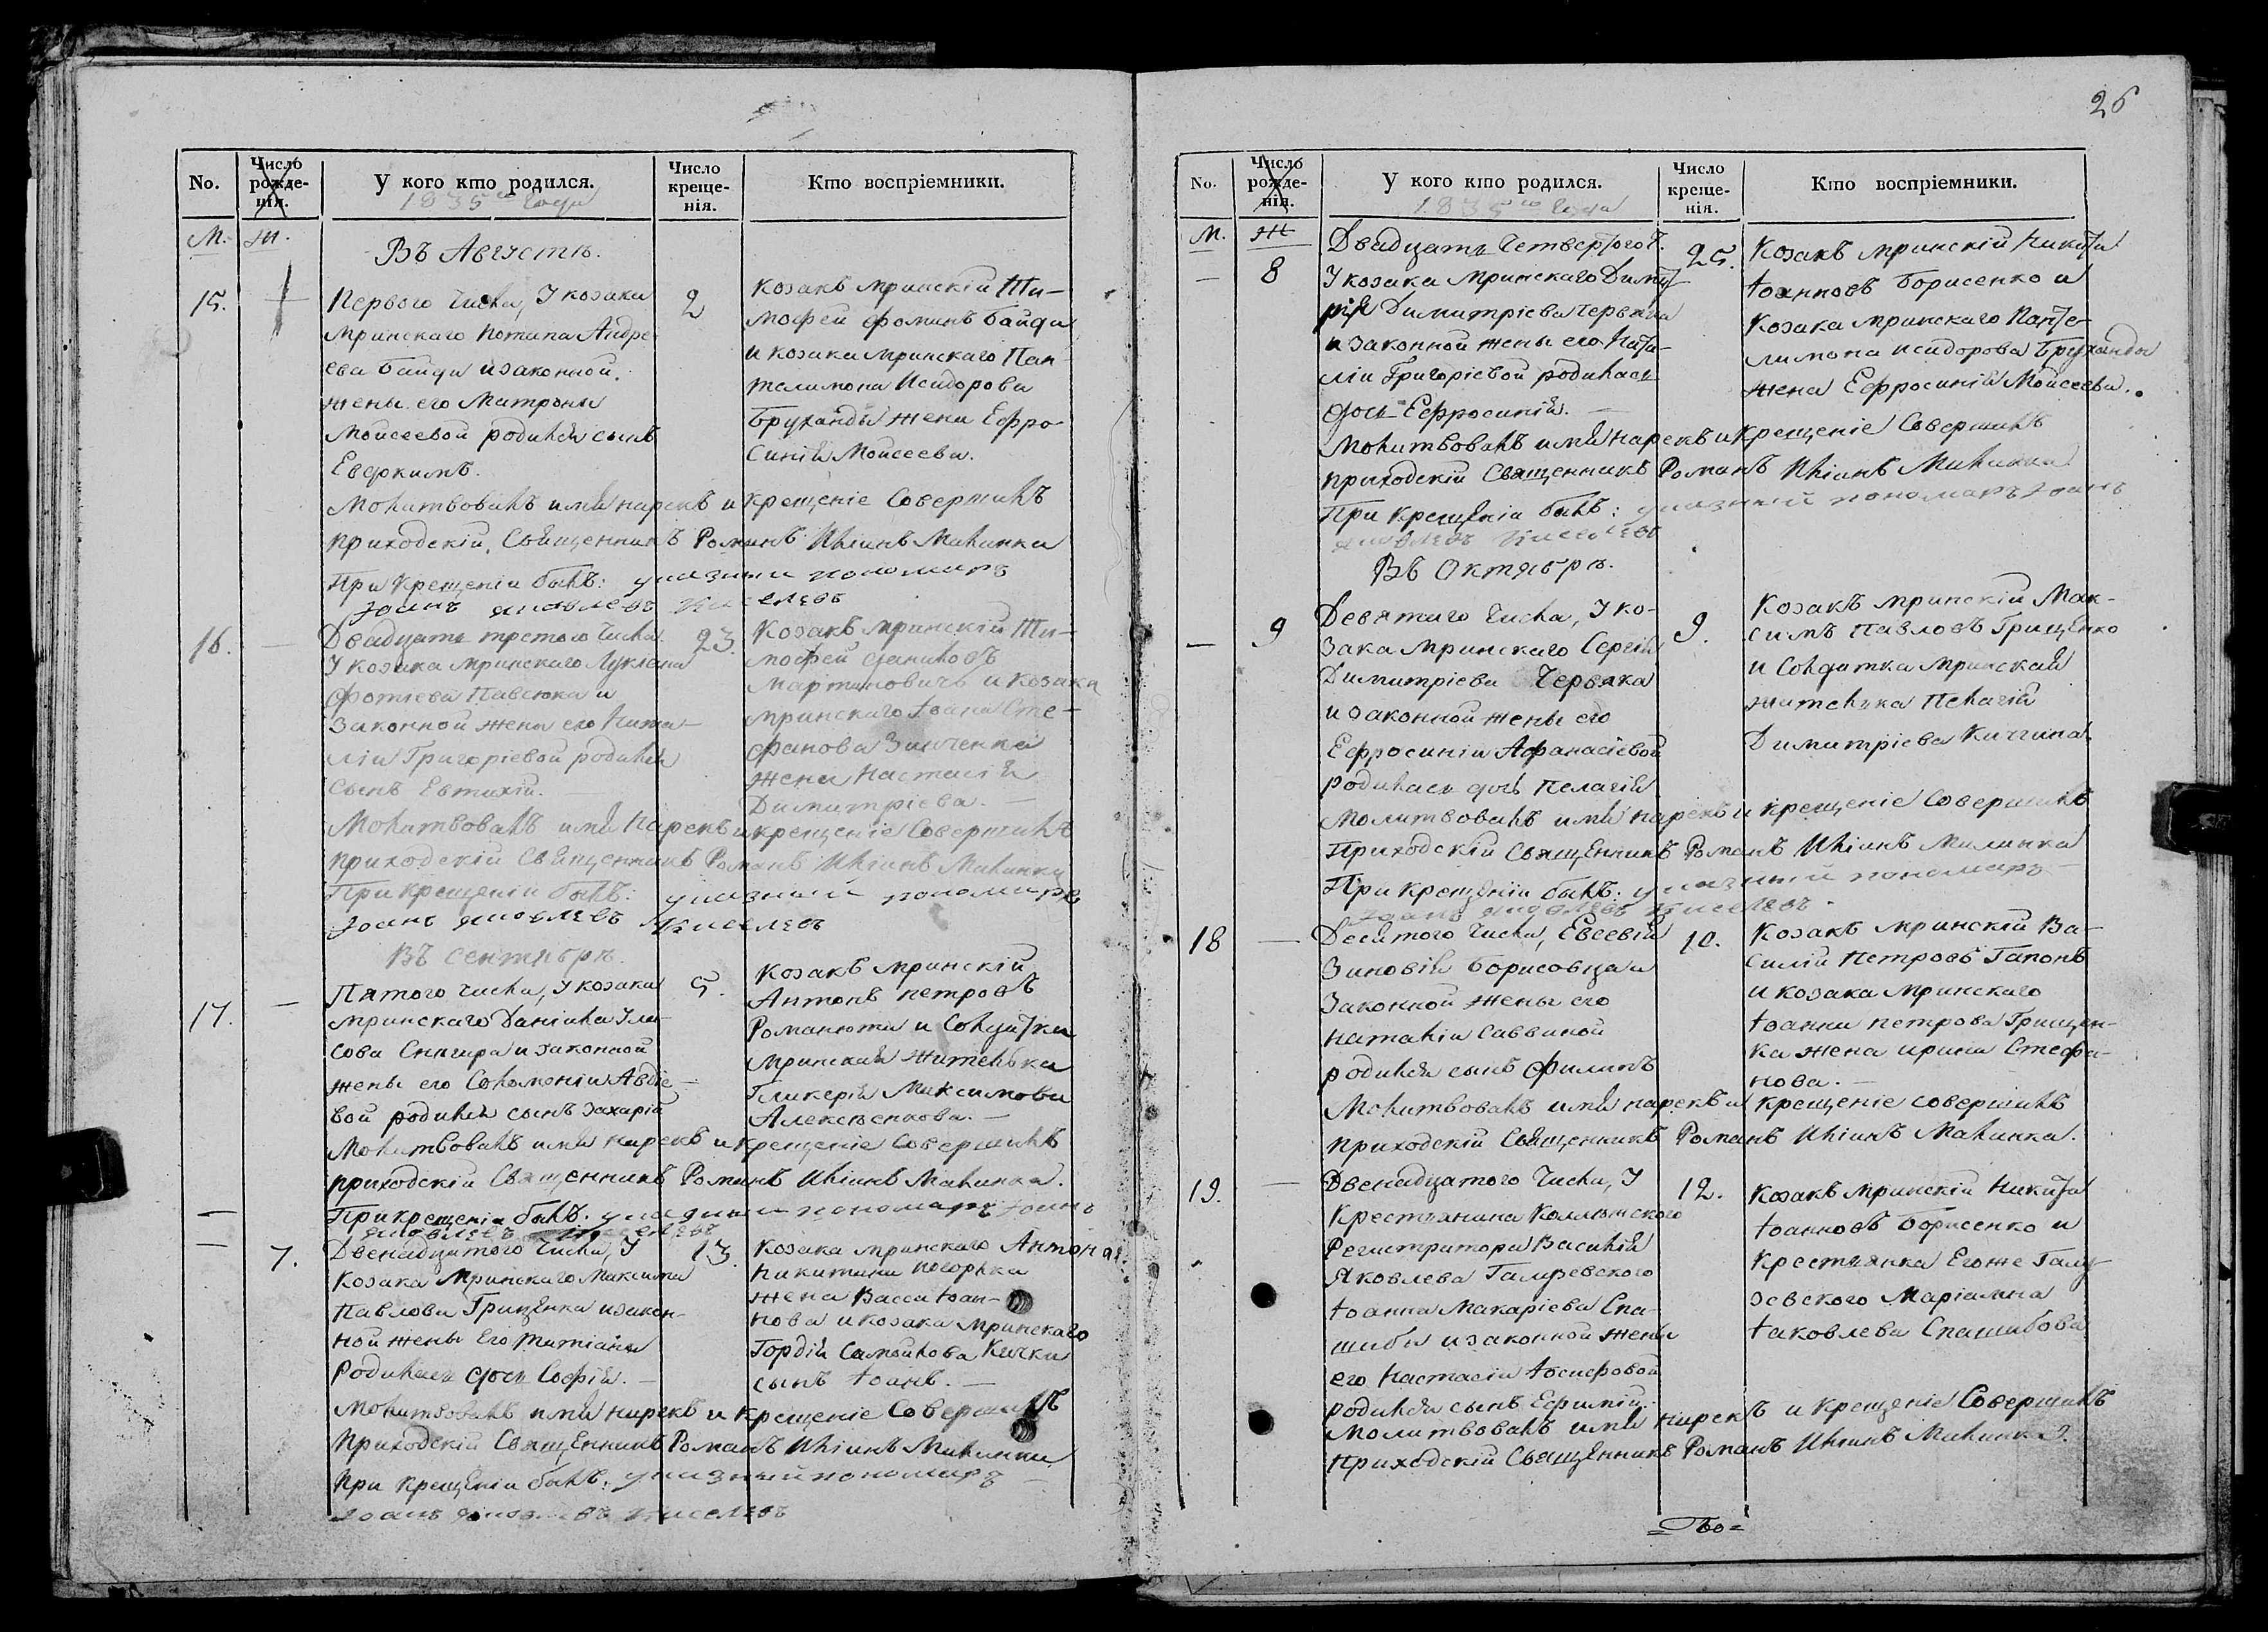 26
No.
Число рожде-нія.
У кого кто родился.
1835го года
Число креще-нія.
Кто воспріемники.
М. Ж.
Въ Августѣ.
15.
Первого числа, У козака
Мринскаго Потапа Андре
ева Байди и законной
жены его Матроны
Моисеевой родился сынъ
Евфкимъ.
2
Козакъ Мринскій Ти-
мофей Фоминъ Байда
и козака Мринскаго Пан
телимона Исидорова
Бруханды жена Ефро-
синія Моисеева.
Молитвовалъ имя нарекъ и крещеніе Совершилъ
приходскій Священникъ Романъ Иліинъ Малинка
При крещеніи былъ: указный пономарь
Іоанъ Яковлевъ Киселевъ
16. —
Двадцать третого числа
У козака Мринскаго Лукіана
Фотіева Павсюка и
Законной жены его Ната-
ліи Григоріевой родился
Сынъ Евтихій. —
23.
Козакъ Мринскій Ти-
мофей Даниловъ
Мартиновичъ и козака
Мринскаго Іоана Сте-
фанова Зинченка
жена Настасія
Димитріева. —
Молитвовалъ имя Нарекъ и крещеніе Совершилъ
приходскій Священникъ Романъ Иліинъ Малинка
При крещеніи былъ: указный пономарь
Іоанъ Яковлевъ Киселевъ
Въ Сентябрѣ.
17. —
Пятого числа, У козака
Мринскаго Даніила Ула-
сова Снѣгира и законной
жены его Соломоніи Авдіе-
вой родился сынъ Захарій
5.
Козакъ Мринскій
Антонъ Петровъ
Романюта и Солдатка
Мринская жителька
Гликерія Максимова
Алексѣенкова. —
Молитвовалъ имя нарекъ и крещеніе Совершилъ
приходскій Священникъ Романъ Иліинъ Малинка.
При крещеніи былъ: указный пономарь Іоанъ
Яковлевъ Киселевъ
— 7.
Двенадцатого числа, У
Козака Мринскаго Максима
Павлова Грищенка и закон-
ной жены Его Татіаны
Родилась дочь Софія. —
13.
Козака Мринскаго Антона
Никитина Погорѣлка
жена Васса Іоан-
нова и козака Мринскаго
Гордія Самойлова Кички
сынъ Іоанъ. —
Молитвовалъ имя нарекъ и крещеніе Совершилъ
Приходскій Священникъ Романъ Иліинъ Малинка
При крещеніи былъ: указный пономарь —
Іоанъ Яковлевъ Киселевъ
No.
Число рожде-нія.
У кого кто родился.
1835го года
Число креще-нія.
Кто воспріемники.
М. Ж
— 8
Двадцать Четвертого Ч.
У козака Мринскаго Дими
рія Димитріева Червяка
и законной жены его Ната-
ліи Григоріевой родилась
дочь Ефросинія. —
25.
Козакъ Мринскій Никита
Іоанновъ Борисенко и
Козака Мринскаго Панте-
лимона Исидорова Бруханды
жена Ефросинія Моисеева.
Молитвовалъ имя нарекъ и крещеніе Совершилъ
приходскій Священникъ Романъ Иліинъ Малинка.
При крещеніи былъ: указный пономарь Іоанъ
Яковлевъ Киселевъ
Въ Октябрѣ.
— 9
Девятаго числа, У ко-
зака Мринскаго Сергія
Димитріева Червяка
и законной жены его
Ефросиніи Афанасіевой
родилась дочь Пелагія
9.
Козакъ Мринскій Мак-
симъ Павловъ Грищенко
и Солдатка Мринская
жителька Пелагія
Димитріева Кичгина
Молитвовалъ имя нарекъ и крещеніе Совершилъ
Приходскій Священникъ Романъ Иліинъ Малинка
При крещеніи былъ: указный пономарь
Іоанъ Яковлевъ Киселевъ.
18 —
Десятого числа, Евсевія
Зиновія Борисовца и
Законной жены его
Наталіи Саввиной
родился сынъ Филипъ
10.
Козакъ Мринскій Ва-
силій Петровъ Гапонъ
и козака Мринскаго
Іоанна Петрова Грищен-
ка жена Ирина Стефа-
нова. —
Молитвовалъ имя нарекъ и крещеніе совершилъ
приходскій Священникъ Романъ Иліинъ Малинка.
19. —
Двенадцатого числа, У
Крестьянина Коллежского
Регистратора Василія
Яковлева Галяревского
Іоанна Макаріева Спа-
шибы и законной жены
его Настасіи Іосифовой
родился сынъ Ефимій.
12.
Козакъ Мринскій Никита
Іоанновъ Борисенко и
Крестьянка Егоже Галя
ревского Маріамна
Іаковлева Спашибова
Молитвовалъ имя нарекъ и крещеніе Совершилъ
Приходскій Священникъ Романъ Иліинъ Малинка.